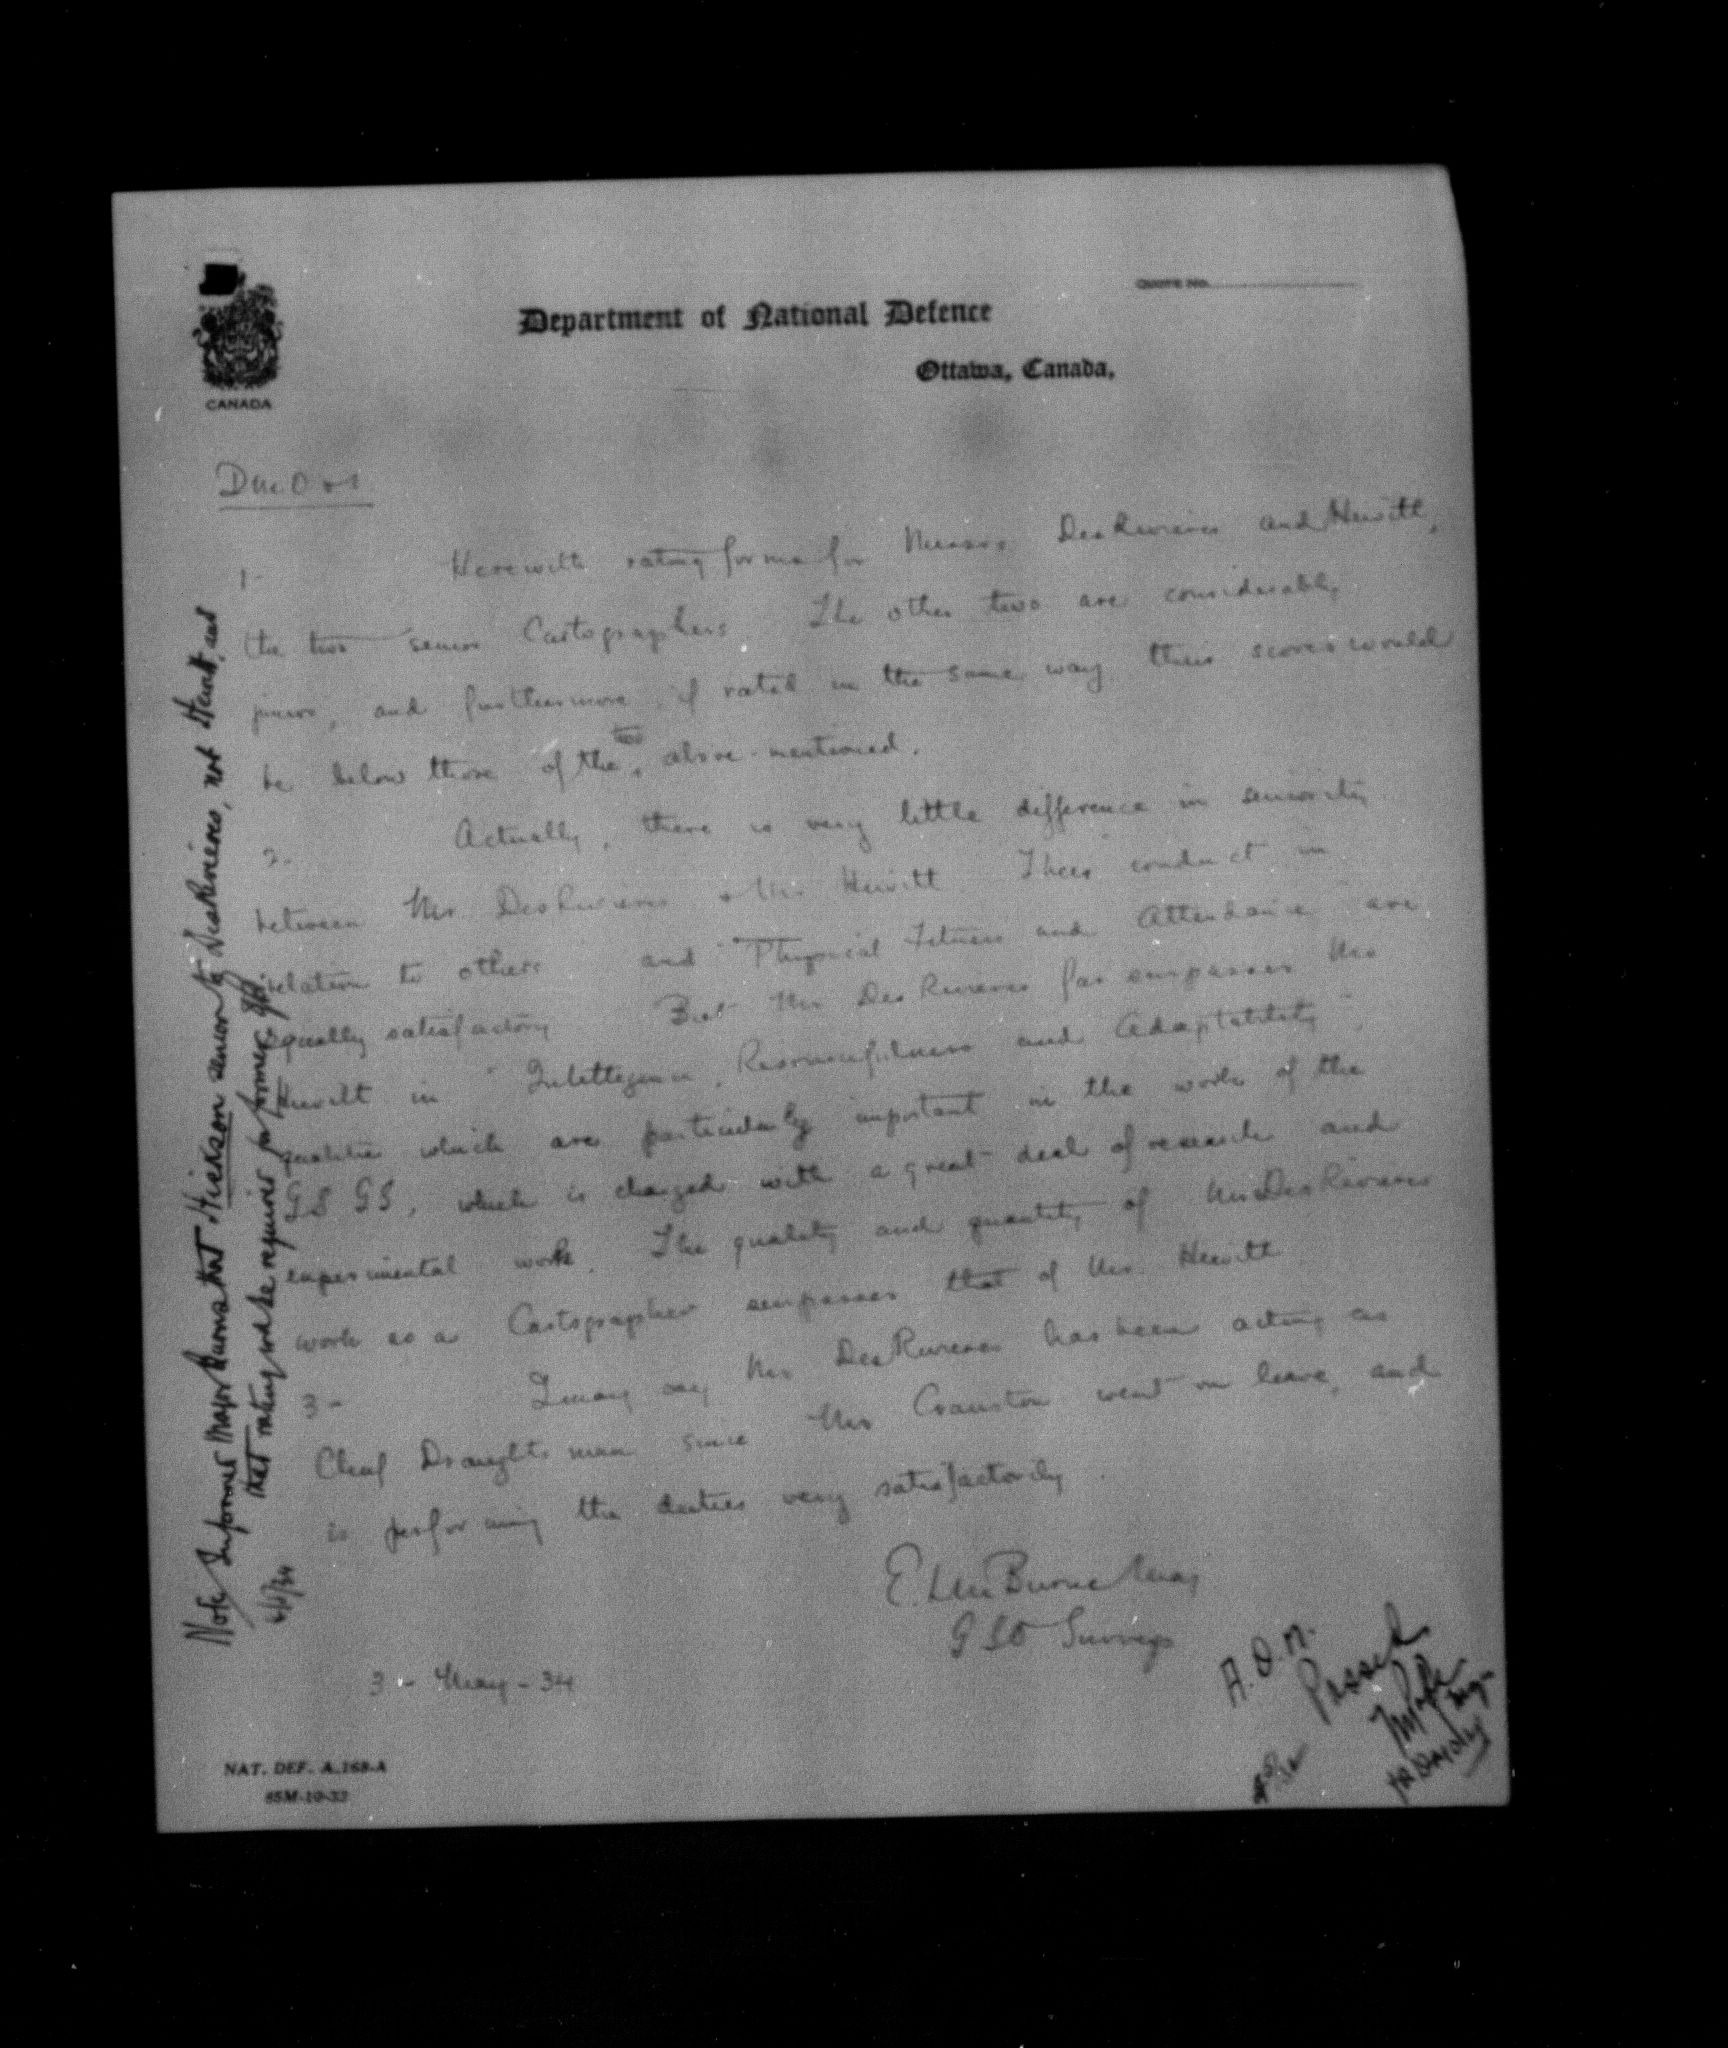 QUOTE No.
Department of National Defence
Ottawa, Canada,
CANADA
1- Herewith rating forms for Messrs DesRivieres and Hewitt,
the two senior Cartographers. The other two are considerably
junior, and furthermore, if rated in the same way their scores would
be below those of the two above-mentioned.
2- Actually, there is very little difference in seniority
between Mr DesRivieres & Mr Hewitt. Their conduct in
relation to others and "Physical Fitness and Attendance" are
equally satisfactory. But Mr DesRivieres far surpasses Mr
Hewitt in "Intelligence, Resourcefulness and Adaptability",
qualities which are particularly important in the work of the
GSGS, which is charged with a great deal of research and
experimental work. The quality and quantity of Mr DesRivieres
work as a Cartographer surpasses that of Mr. Hewitt
3- I may say Mr DesRivieres has been acting as
Chief Draughtsman since Mr Cranston went on leave, and
is performing the duties very satisfactorily.
E. L. M. Burns Maj
GSO Surveys
3-May-34
Note Informed Major Burns that Hickson senior to DesRivieres, not Hewitt, and
that rating wd be required for former.
A.O.N.
Passed
NAT. DEF. A.168-A